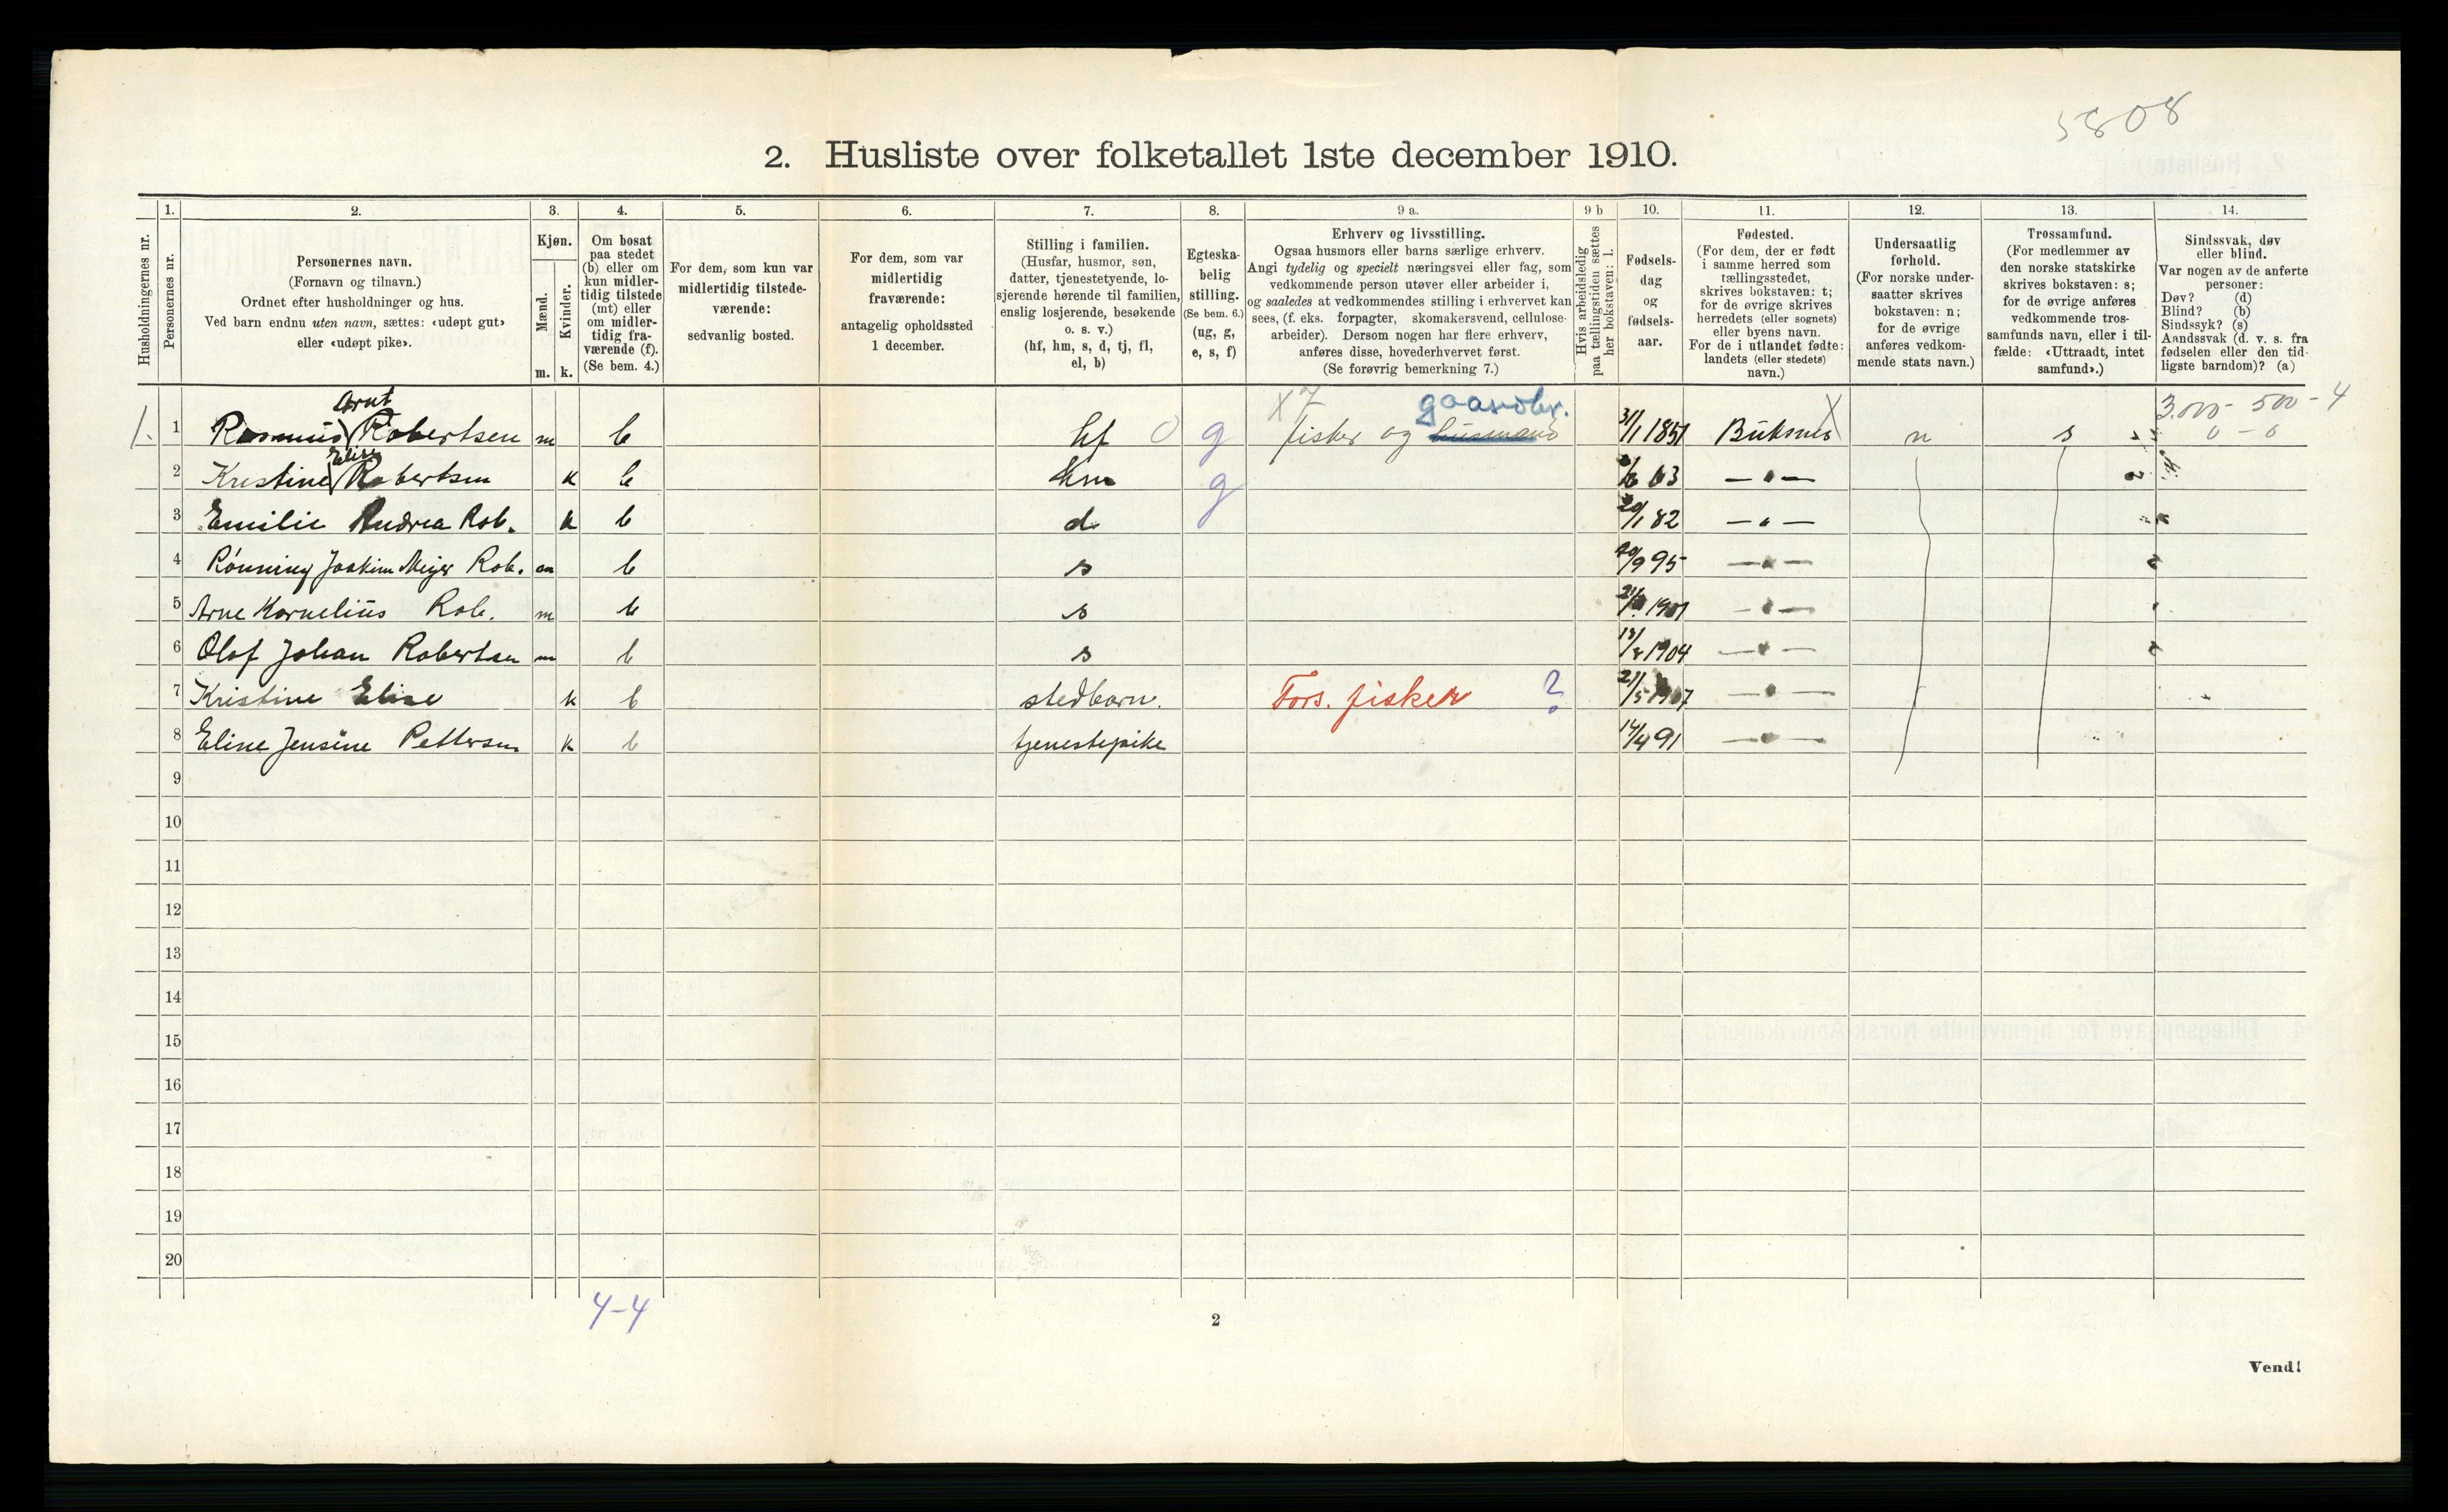 5808
2. Husliste over folketallet 1ste december 1910.
Husholdningernes nr.
1.
Personernes nr.
2.
Personernes navn.
(Fornavn og tilnavn.)
Ordnet efter husholdninger og hus.
Ved barn endnu uten navn, sættes: «udøpt gut»
eller «udøpt pike».
3.
Kjøn.
Mænd.
Kvinder.
m. k.
4.
Om bosat
paa stedet
(b) eller om
kun midler-
tidig tilstede
(mt) eller
om midler-
tidig fra-
værende (f).
(Se bem. 4.)
5.
For dem, som kun var
midlertidig tilstede-
værende:
sedvanlig bosted.
6.
For dem, som var
midlertidig
fraværende:
antagelig opholdssted
1 december.
7.
Stilling i familien.
(Husfar, husmor, søn,
datter, tjenestetyende, lo-
sjerende hørende til familien,
enslig losjerende, besøkende
o. s. v.)
(hf, hm, s, d, tj, fl,
el, b)
8.
Egteska-
belig
stilling.
(Se bem. 6.)
(ug, g,
e, s, f)
9 a.
Erhverv og livsstilling.
Ogsaa husmors eller barns særlige erhverv.
Angi tydelig og specielt næringsvei eller fag, som
vedkommende person utøver eller arbeider i,
og saaledes at vedkommendes stilling i erhvervet kan
sees, (f. eks. forpagter, skomakersvend, cellulose-
arbeider). Dersom nogen har flere erhverv,
anføres disse, hovederhvervet først.
(Se forøvrig bemerkning 7.)
9 b
Hvis arbeidsledig
paa tællingstiden sættes
her bokstaven: l.
10.
Fødsels-
dag
og
fødsels-
aar.
11.
Fødested.
(For dem, der er født
i samme herred som
tællingsstedet,
skrives bokstaven: t;
for de øvrige skrives
herredets (eller sognets)
eller byens navn.
For de i utlandet fødte:
landets (eller stedets)
navn.)
12.
Undersaatlig
forhold.
(For norske under-
saatter skrives
bokstaven: n;
for de øvrige
anføres vedkom-
mende stats navn.)
13.
Trossamfund.
(For medlemmer av
den norske statskirke
skrives bokstaven: s;
for de øvrige anføres
vedkommende tros-
samfunds navn, eller i til-
fælde: «Uttraadt, intet
samfund».)
14.
Sindssvak, døv
eller blind.
Var nogen av de anførte
personer:
Døv? (d)
Blind? (b)
Sindssyk? (s)
Aandssvak (d. v. s. fra
fødselen eller den tid-
ligste barndom)? (a)
Arnt X7 gaardbr. 3.000 - 500 - 4
1. 1 Rasmus Robertsen m b hf 0 g fisker og husmand 31/1 1851 Buksnes X n s 0 - 0
Elise
2 Kristine Robertsen k b hm g 63 — " —
3 Emilie Andrea Rob. k b d 20/1 82 — " —
4 Rønning Joakim Meyer Rob. m b s 20/9 95 — " —
5 Arne Kornelius Rob. m b s 1901 — " —
6 Olaf Johan Robertsen m b s 1904 — " —
7 Kristine Elise k b stedbarn. Fors. fisker ? 21/5 1907 — " —
8 Eline Jensine Pettersen k b tjenestepike 14/4 91 — " —
9
10
11
12
13
14
15
16
17
18
19
20
4-4
2
Vend!